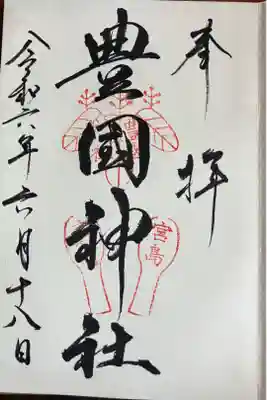 奉拝
豊國神社
豊國
宮島
令和六年六月十八日